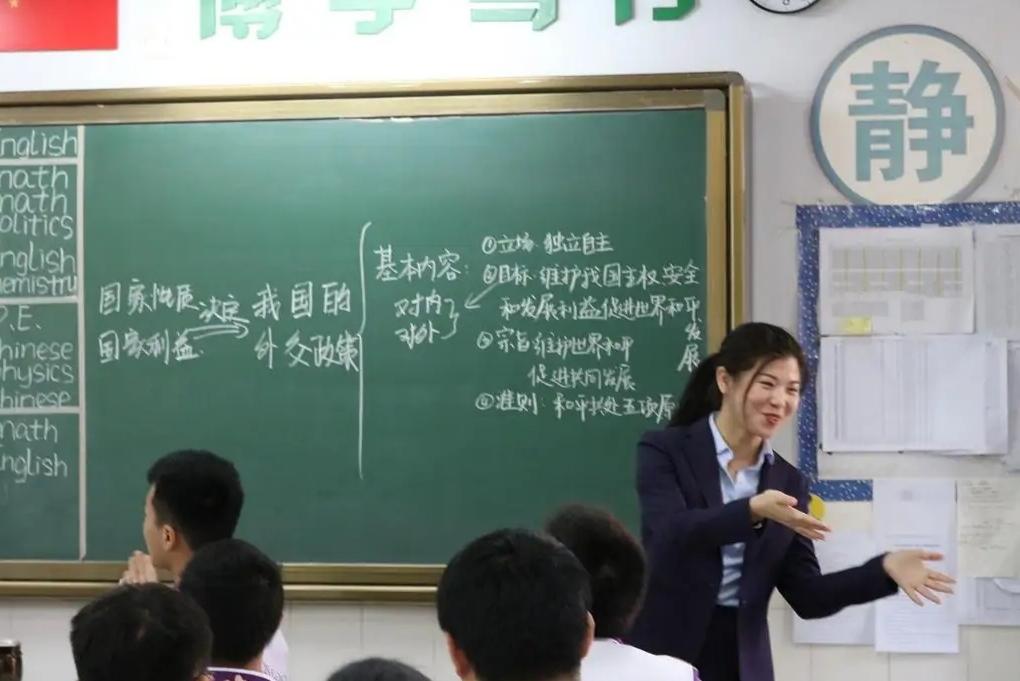 静
nglish
math
math
olitics
nglish
hemistry
P.E.
hinese
hysics
hinese
math
nglish
国家性质
国家利益
决定
我国的
外交政策
基本内容:
对内
对外
①立场 独立自主
②目标:维护我国主权、安全
和发展利益促进世界和平
发展
③宗旨:维护世界和平
促进共同发展
④准则:和平共处五项原